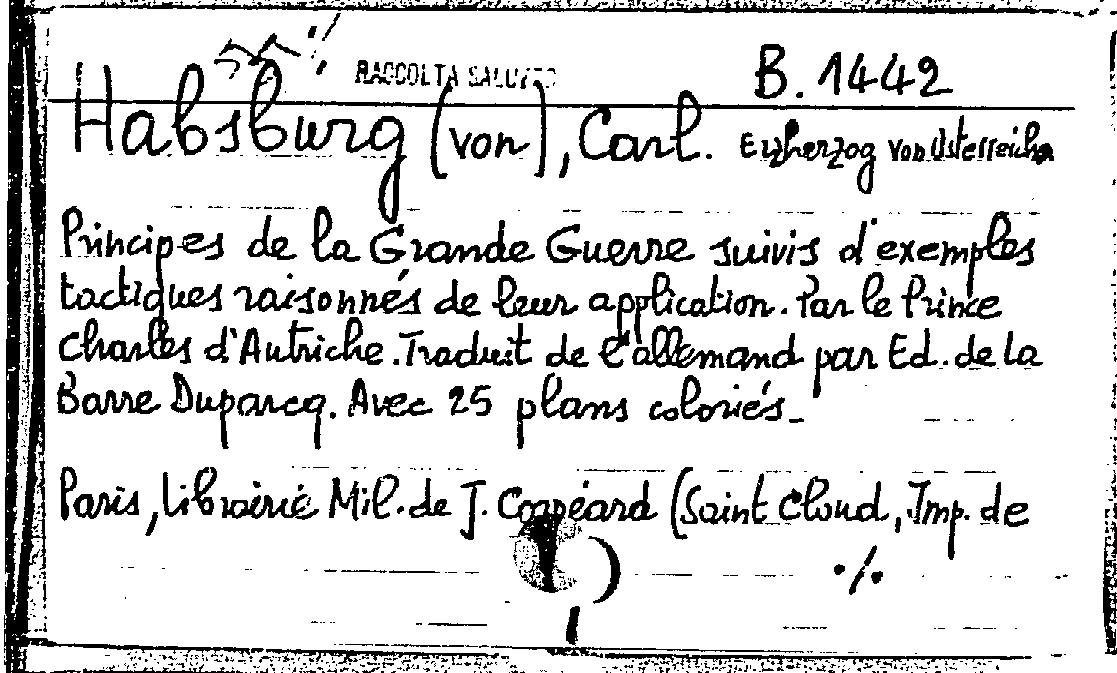 RACCOLTA SALUZZO B. 1442
Habsburg (von), Carl. Erzherzog von Österreich
Principes de la Grande Guerre suivis d'exemples
tactiques raisonnés de leur application. Par le Prince
Charles d'Autriche. Traduit de l'allemand par Ed. de la
Barre Duparcq. Avec 25 plans coloriés_
Paris, Librairie Mil. de J. Coapéard (Saint Cloud, Imp. de
./.